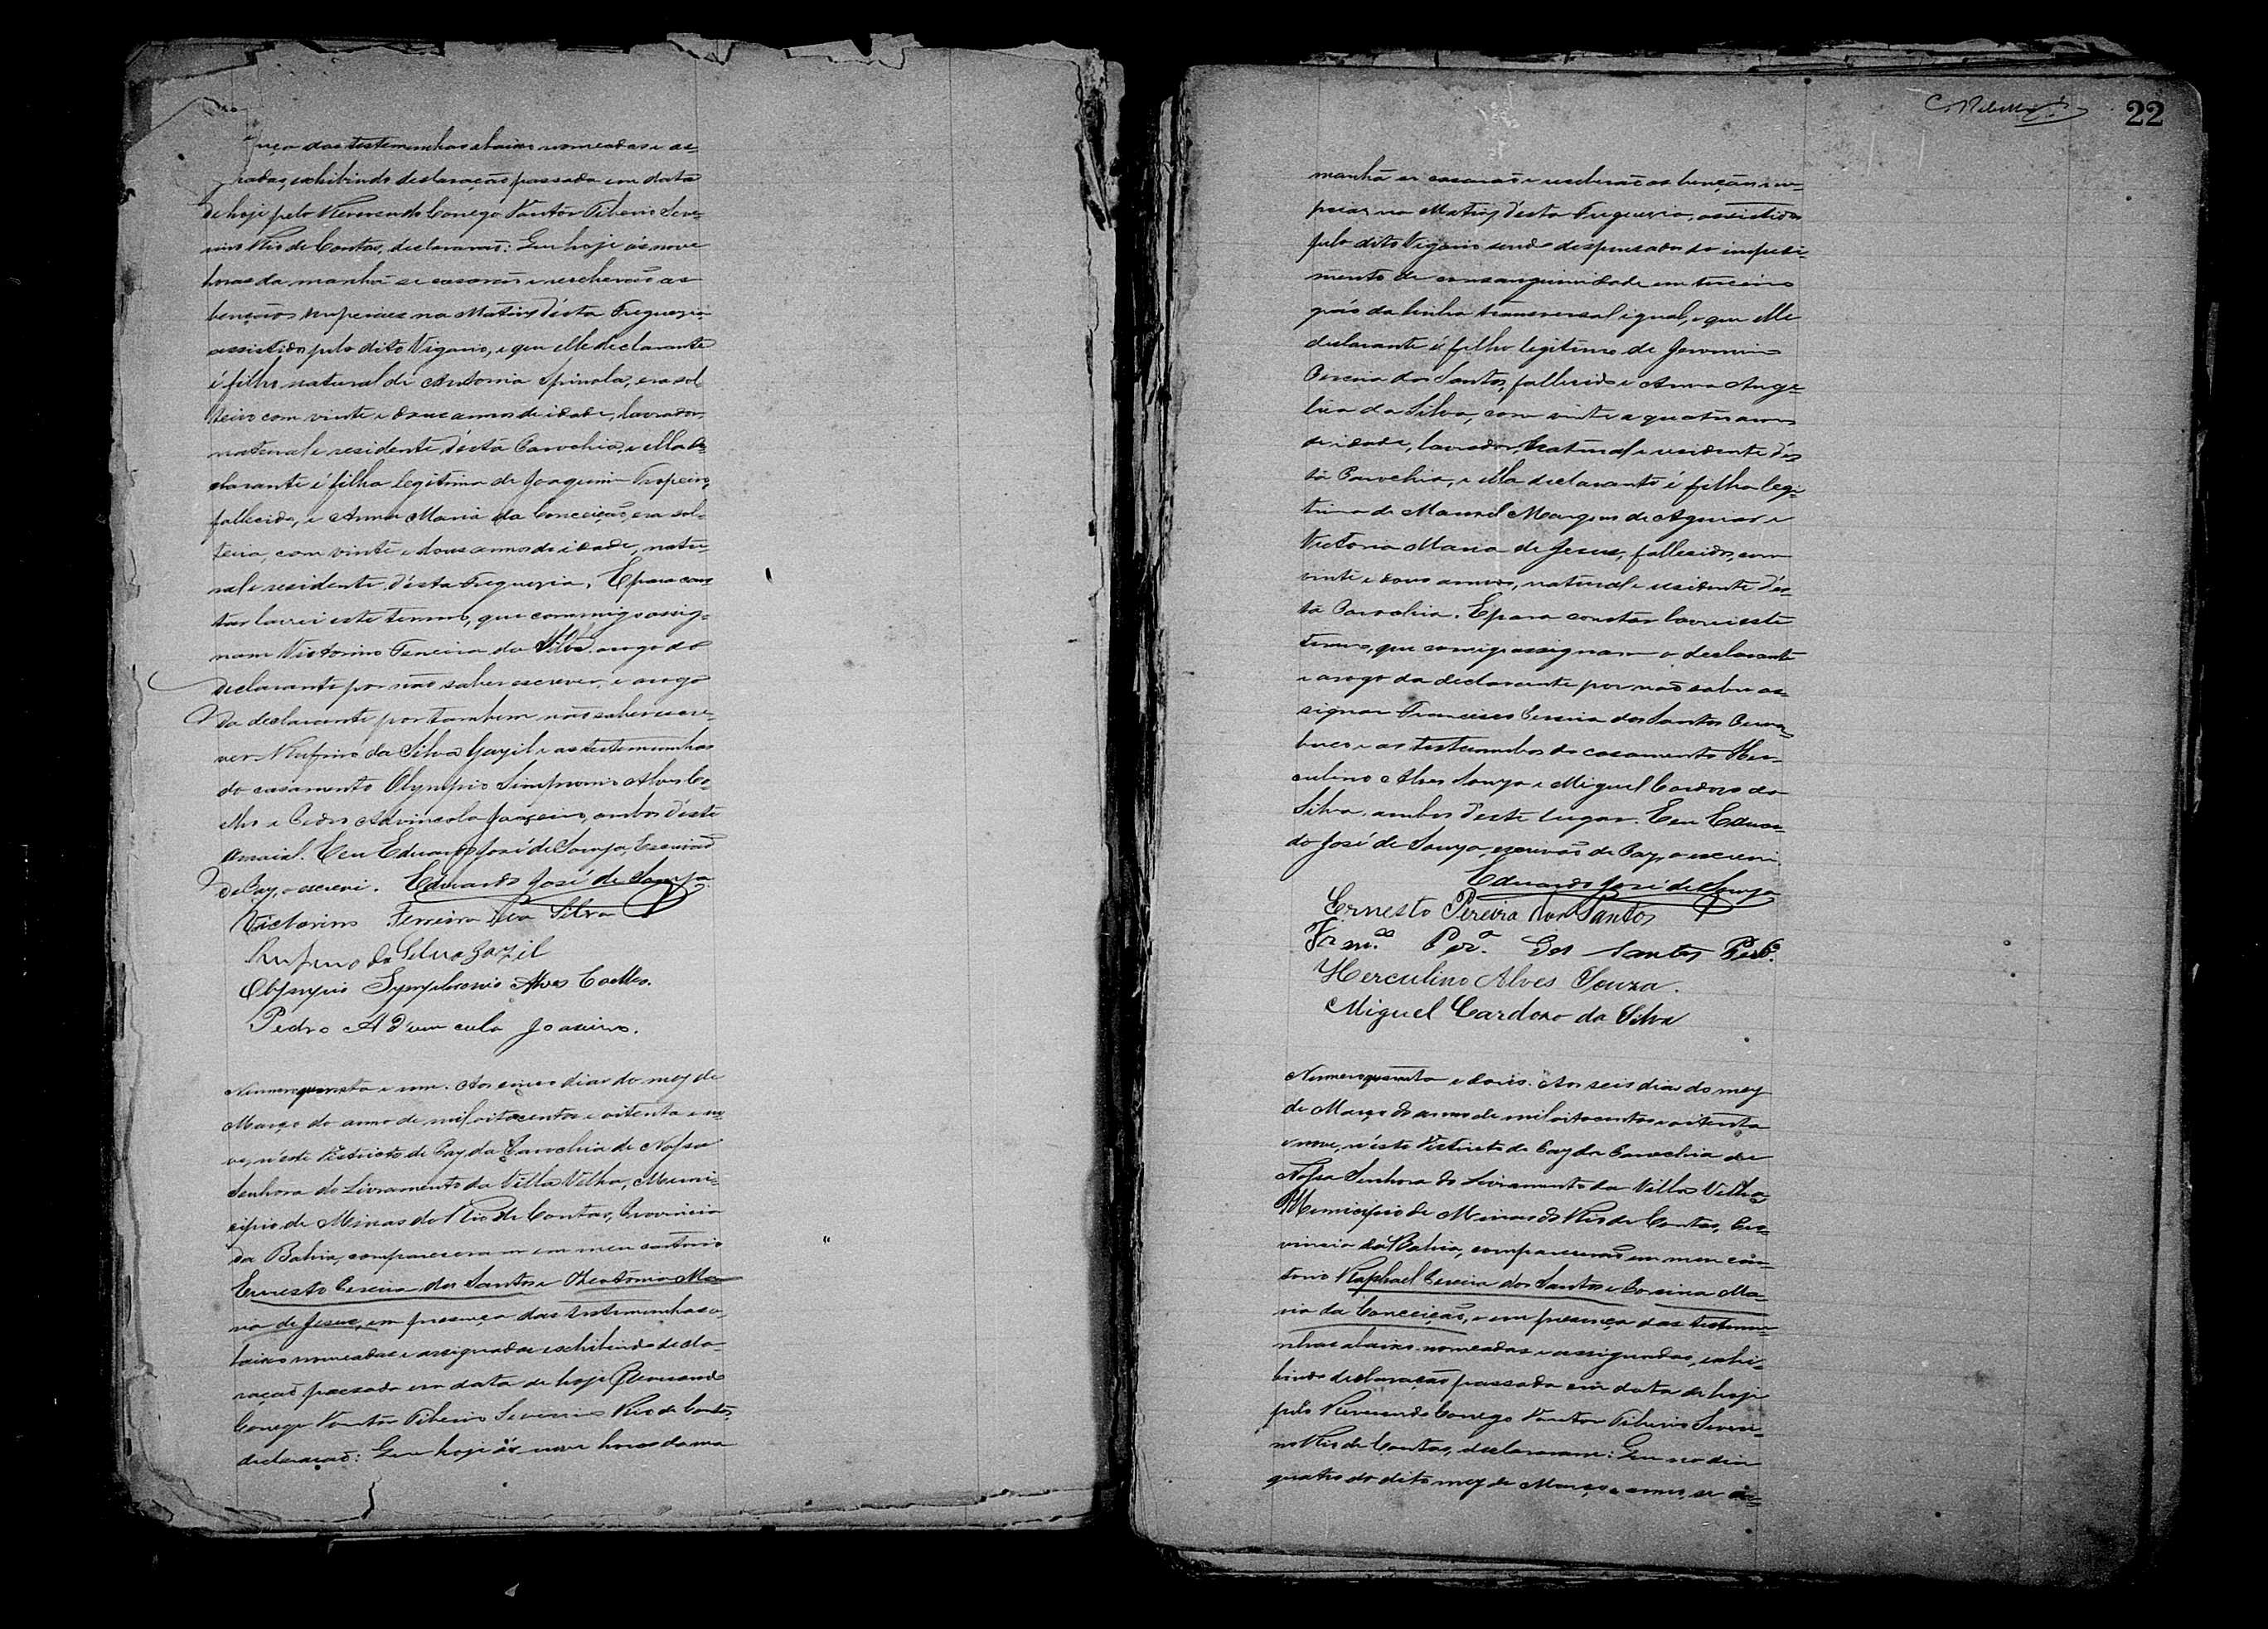 nça das testemunhas abaixo nomeadas e as-
nadas, exhibindo declaração passada em data
de hoje pelo Reverendo Conego Vigario Tiberio Seve-
rino Rio de Contas, declararão: Que hoje ás nove
horas da manhã se casarão e receberão as
bençãos nupciaes na Matriz d'esta Freguezia
assistidos pelo dito Vigario, e que elle declarante
é filho natural de Antonia Spinola, era sol
teiro com vinte e dous annos de idade, lavrador,
natural e residente d'esta Parochia, e ella de-
clarante é filha legitima de Joaquim Tropeiro,
fallecido, e Anna Maria da Conceição, era sol-
teira, com vinte e dous annos de idade, natu-
ral e residente d'esta Freguezia. E para cons
tar lavrei este termo, que commigo assig-
nam Victorino Ferreira da Silva arogo do
declarante por não saber escrever, e arogo
da declarante por tambem não saber escre-
ver Rufino da Silva Gazil e as testemunhas
do casamento Olympio Simpronio Alves Co-
elho e Pedro Advincola Joazeiro, ambos d'este
Arraial. Eu Eduardo José de Souza, Escrivão
de Paz, o escrevi. Eduardo José de Souza
Victorino Ferreira da Silva
Rufino da Silva Gazil
Olympio Symphronio Alves Coelho.
Pedro Advincula Joaseiro.
Numero quarenta e um. Aos cinco dias do mez de
Março do anno de mil oitocentos e oitenta e no-
ve, n'este Districto de Paz da Parochia de Nossa
Senhora do Livramento da Villa Velha, Muni-
cipio de Minas do Rio de Contas, Provincia
da Bahia, compareceram em meu cartorio
Ernesto Pereira dos Santos e Theotonia Ma-
ria de Jesus, em presença das testemunhas a-
baixo nomeadas e assignadas exhibindo decla-
ração passada em data de hoje Reverendo
Conego Tiberio Severino Rio de Contas,
declararão: Que hoje ás nove horas da ma
22
manhã se casarão e receberão as bençãos nu-
pciaes na Matriz d'esta Freguezia, assistidos
pelo dito Vigario sendo despensados do impedi-
mento de consanguinidade em terceiro
gráo da linha transversal igual, e que elle
declarante é filho legitimo de Jeronimo
Pereira dos Santos, fallecido e Anna Ange-
lica da Silva, com vinte e quatro annos
de idade, lavrador, natural e residente d'es
ta Parochia, e ella declarante é filha legi-
tima de Manoel Marques de Aguiar e
Victoria Maria de Jesus, fallecidos, com
vinte e dous annos, natural e residente d'es-
ta Parochia. E para constar lavrei este
termo, que comigo assignam o declarante
e arogo da declarante por não saber as-
signar Francisco Pereira dos Santos
e as testemunhas do casamento Her-
culino Alves Souza e Miguel Cardozo da
Silva, ambos d'este lugar. Eu Eduar-
do José de Souza, escrivão de Paz, o escrevi.
Eduardo José de Souza
Ernesto Pereira dos Santos
Fran.co Per.a dos Santos
Herculino Alves Souza.
Miguel Cardozo da Silva
Numero quarenta e dous. Aos seis dias do mez
de Março do anno de mil oitocentos e oitenta
e nove, n'este Districto de Paz da Parochia de
Nossa Senhora do Livramento da Villa Velha,
Municipio de Minas do Rio de Contas, Pro-
vincia da Bahia, comparecerão em meu car-
torio Raphael Pereira dos Santos e Corina Ma-
ria da Conceição, e em presença das testemu-
nhas abaixo nomeadas e assignadas, exhi-
bindo declaração passada em data de hoje
pelo Reverendo Conego Tiberio Severi-
no Rio de Contas, declararam: Que no dia
quatro do dito mez de Março e anno, se